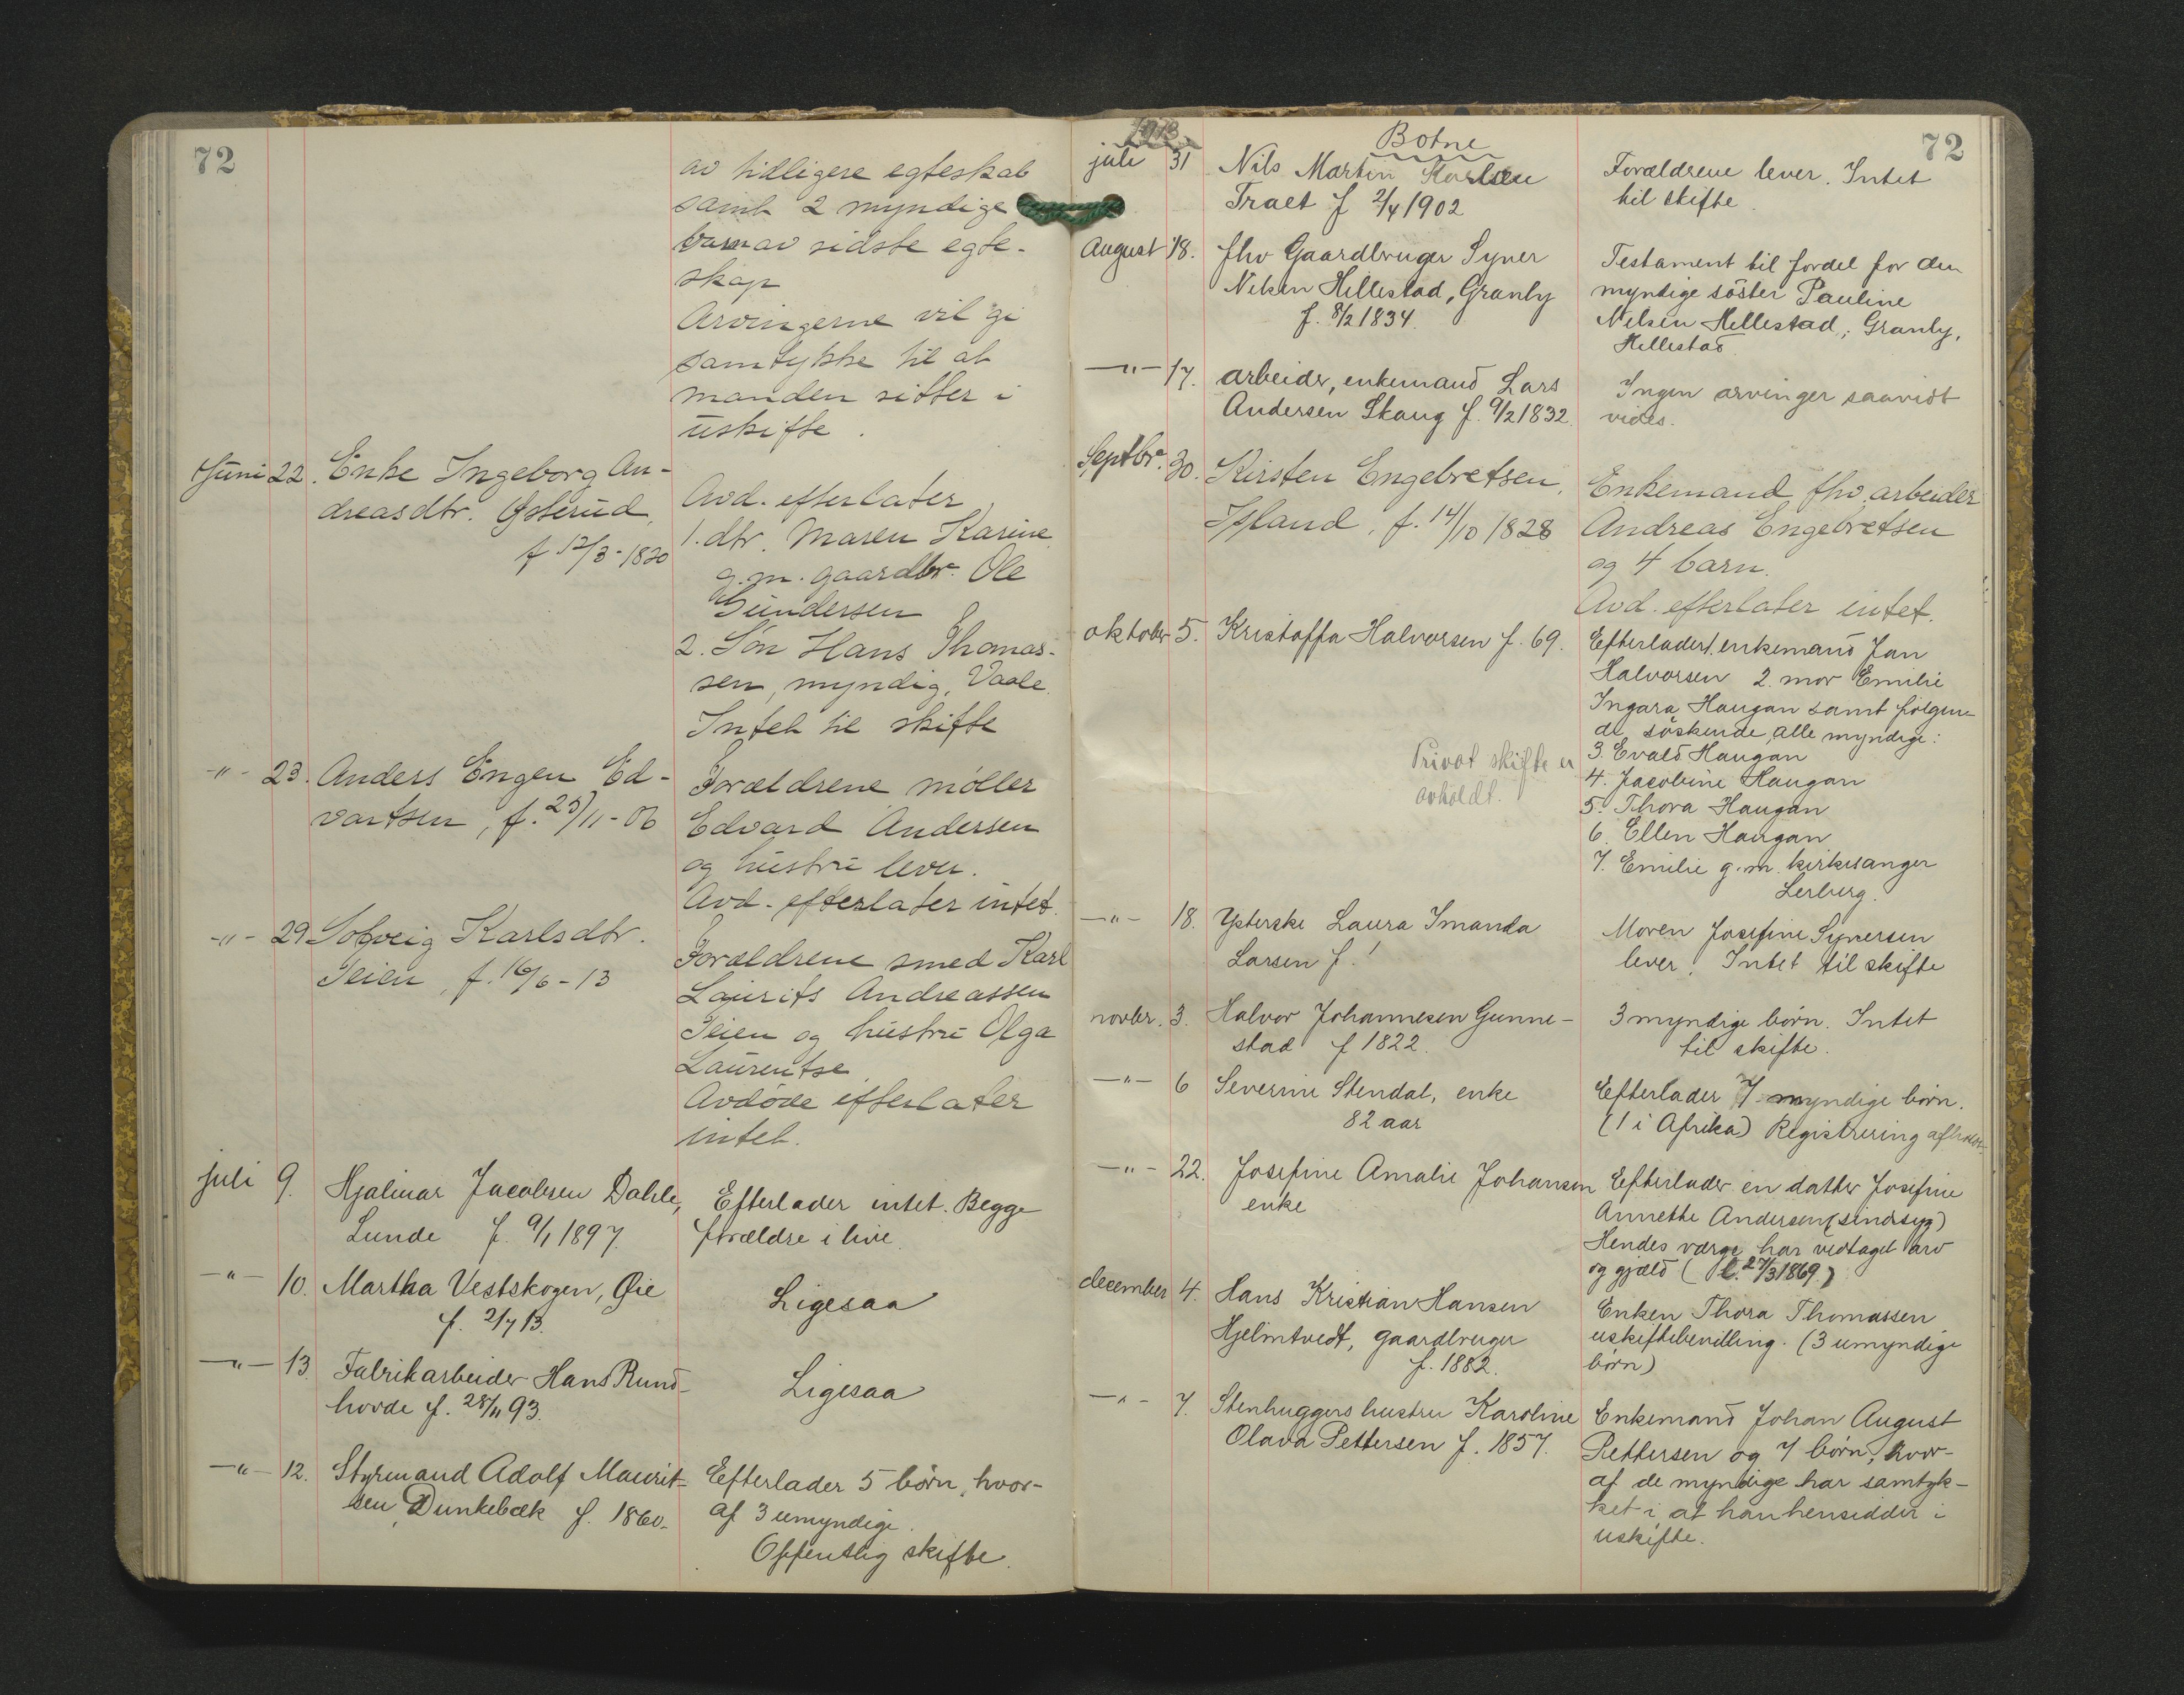 72
av tidligere egteskab
samt 2 myndige
barn av sidste egte-
skap
Arvingerne vil gi
samtykke til at
manden sitter i
uskifte.
Juni 22. Enke Ingeborg An-
dreasdtr. Østerud,
f 12/3-1820
Avd. efterlater
1. dtr. Maren Karine
g.m. gaardbr. Ole
Gundersen
2. Søn Hans Thomas-
sen, myndig, Vaale.
Intet til skifte
-"- 23. Anders Engen Ed-
vartsen, f. 25/11-06
Forældrene møller
Edvard Andersen
og hustru lever.
Avd. efterlater intet.
-"- 29 Solveig Karlsdtr.
Teien, f. 16/6-13
Forældrene smed Karl
Laurits Andreassen
Teien og hustru Olga
Laurentse
Avdøde efterlater
intet.
juli 9. Hjalmar Jacobsen Dahle,
Lunde f. 9/1 1897.
Efterlader intet. Begge
forældre i live.
-"- 10. Martha Vestskogen, Øie
f. 2/7 13.
Ligesaa
-"- 13. Fabrikarbeider Hans Rund-
hovde f. 28/11 93.
Ligesaa
-"- 12. Styrmand Adolf Maurit-
sen, Dunkebæk f. 1860.
Efterlader 5 børn, hvor-
af 3 umyndige.
Offentlig skifte.
1913
Botne
72
juli 31 Nils Martin Karlsen
Traet f 2/4 1902
Forældrene lever. Intet
til skifte.
August 18. fhv Gaardbruger Syver
Nilsen Hillestad, Granly
f. 8/2 1834.
Testament til fordel for den
myndige söster Pauline
Nilsen Hillestad, Granly,
Hillestad
-"- 17. arbeider, enkemand Lars
Andersen Skaug f. 9/2 1832.
Ingen arvinger saavidt
vides.
Septbr. 30. Kirsten Engebretsen,
Island, f. 14/10 1828
Enkemand, fhv. arbeider
Andreas Engebretsen
og 4 barn.
Avd. efterlater intet.
oktober 5. Kristoffa Halvorsen f. 69.
Efterlader 1. enkemand Jan
Halvorsen 2. mor Emilie
Ingara Haugan samt følgen-
de söskende, alle myndige:
Privat skifte er
avholdt.
3. Evald Haugan
4. Jacobine Haugan
5. Thora Haugan
6. Ellen Haugan
7. Emilie g.m. kirkesanger
Lerberg.
-"- 18. Ysterske Laura Imanda
Larsen f.!
Moren Josefine Syversen
lever. Intet til skifte
novbr. 3. Halvor Johannesen Gunne-
stad f 1822.
3 myndige børn. Intet
til skifte.
-"- 6 Severine Stendal, enke
82 aar
Efterlader 7 myndige børn.
(1 i Afrika) Registrering afholdt.
-"- 22. Josefine Amalie Johansen
enke
Efterlader en datter Josefine
Annette Andersen (sindssyg)
Hendes værge har vedtaget arv
og gjæld (f. 27/3 1869)
december 4. Hans Kristian Hansen
Hjelmtvedt, gaardbruger
f. 1882.
Enken Thora Thomassen
uskiftebevilling. (3 umyndige
børn)
-"- 7. Stenhuggers hustru Karoline
Olava Pettersen f. 1857.
Enkemand Johan August
Pettersen og 7 børn, hvor-
af de myndige har samtyk-
ket i at han hensidder i
uskifte.